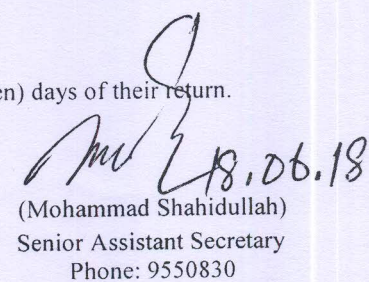 en) days of their return.
18.06.18
(Mohammad Shahidullah)
Senior Assistant Secretary
Phone: 9550830